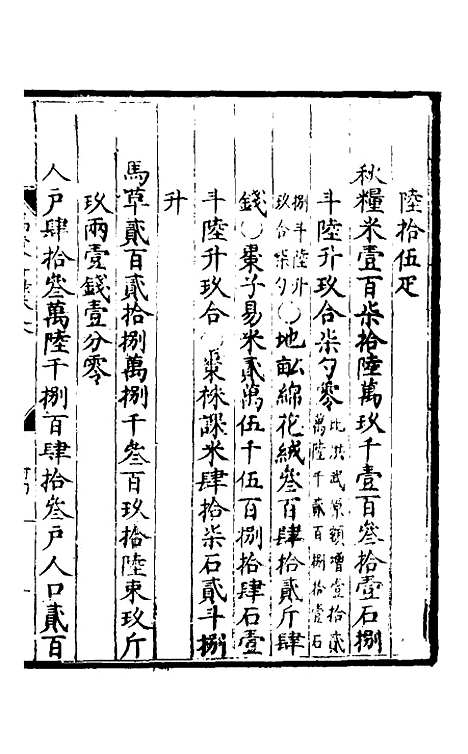 陸拾伍疋
秋糧米壹百柒拾陸萬玖千壹百叁拾壹石捌
斗陸升玖合柒勺零比洪武原額增壹拾貳萬陸千貳百捌拾壹石
捌斗陸升玖合柒勺○地畆綿花絨叁百肆拾貳斤肆
錢○棗子易米貳萬伍千伍百捌拾肆石壹
斗陸升玖合○棗株課米肆拾柒石貳斗捌
升
馬草貳百貳拾捌萬捌千叁百玖拾陸束玖斤
玖兩壹錢壹分零
人戶肆拾叁萬陸千捌百肆拾叁戶人口貳百